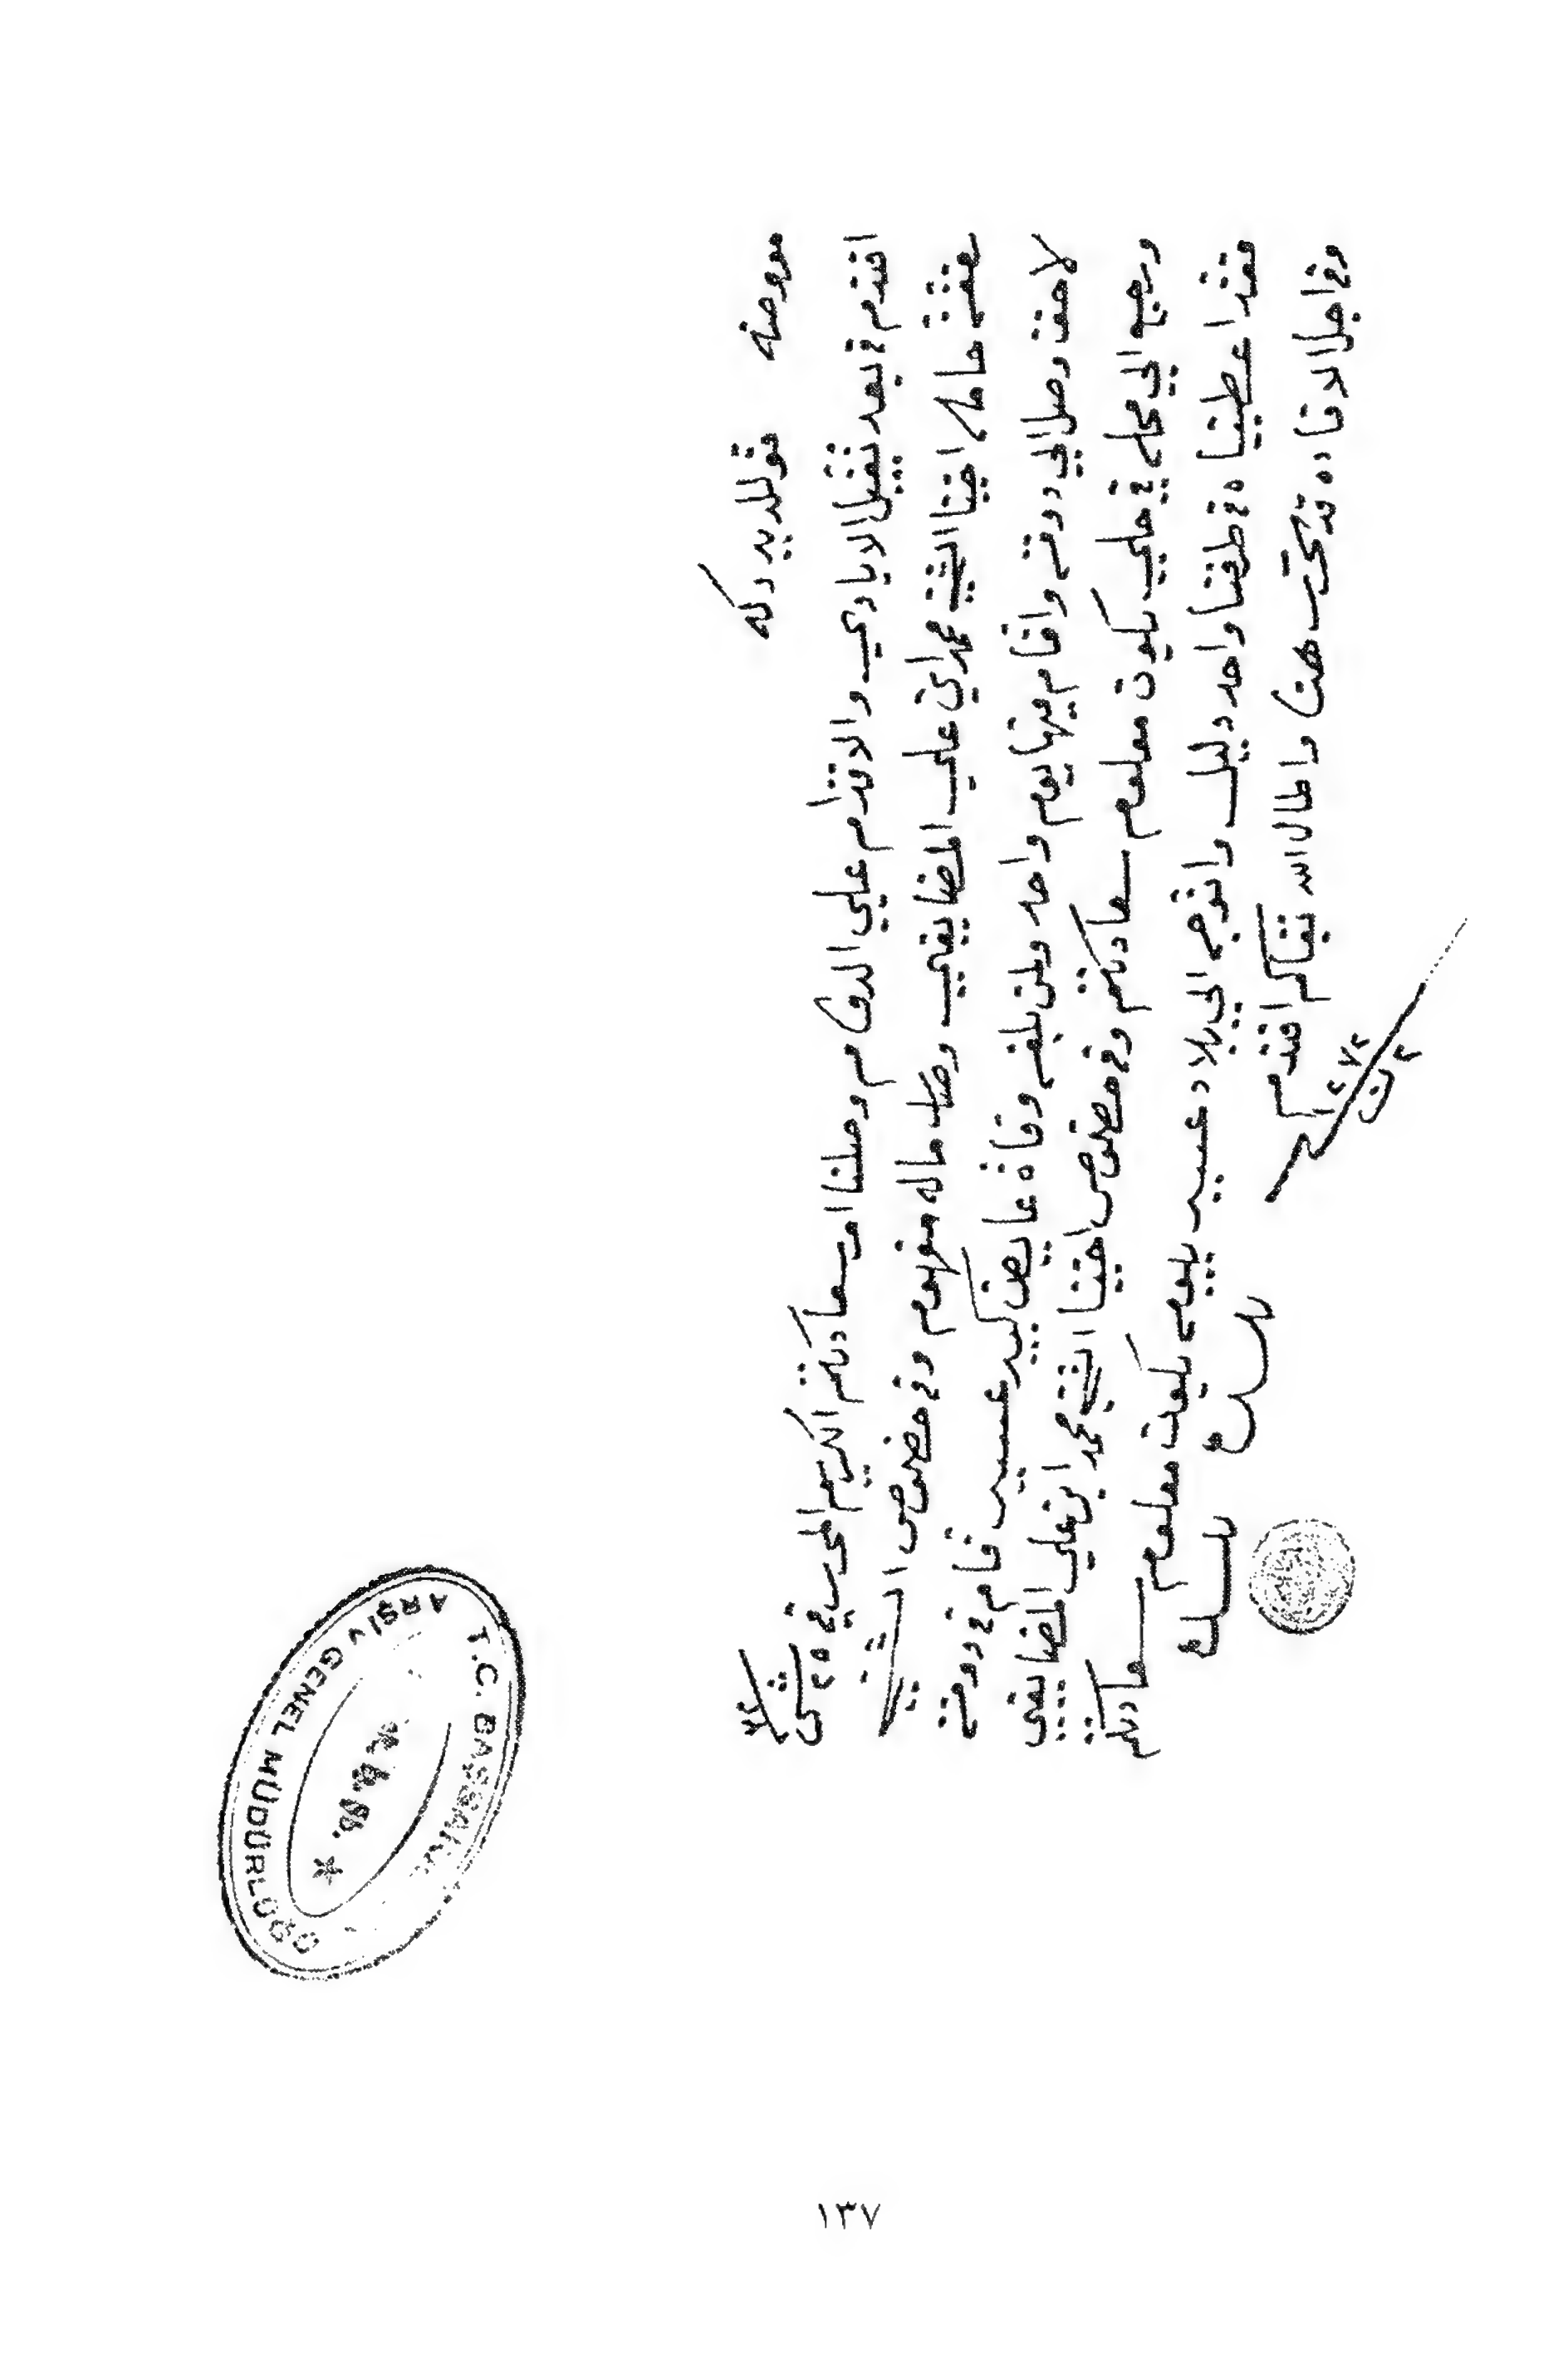 معروضه قوللريدركه
افندم في بعد تقبيل الايادي والاقدام علي الدوام وصلنا امر سعادتكم الكريم المحرر في ٢٥ ش
حامله اخينا الشيخ محمد ابن علي المضايفي وصار ماله مفهوم وفي خصوص الشيخ
لاحق وصل الي دوقه واقام فيها يوم واحد ولمن بلغه وفاة عايض كبير عسير قام في دوقة
ورجع الي محله في حلي يكون معلوم سعادتكم وفي خصوص اخينا الشيخ محمد ابن علي المضايفي
فقد اعطيناه في طرفنا واحد دليل واتوجه الي بلاد عسير يكون معلوم سعادتكم
وفي اجل الافاده قد تحرر هنا واطال الله بقاكم افندم
٢ ن ٢٧٢
T.C. BAŞBAKANLIK
ARŞİV GENEL MÜDÜRLÜĞÜ
١٣٧